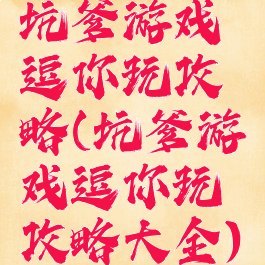 坑爹游戏
逗你玩攻
略(坑爹游
戏逗你玩
攻略大全)